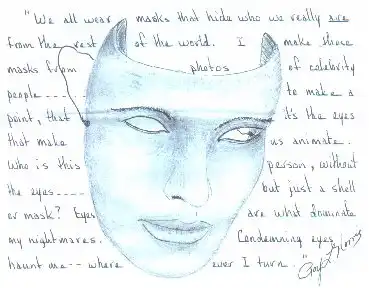 "We all wear masks that hide who we really are
from the rest of the world. I make these
masks from photos of celebrity
people ---- to make a
point, that it's the eyes
that make us animate.
Who is this person, without
the eyes ---- but just a shell
or mask? Eyes are what dominate
my nightmares. Condemning eyes
haunt me -- where ever I turn."